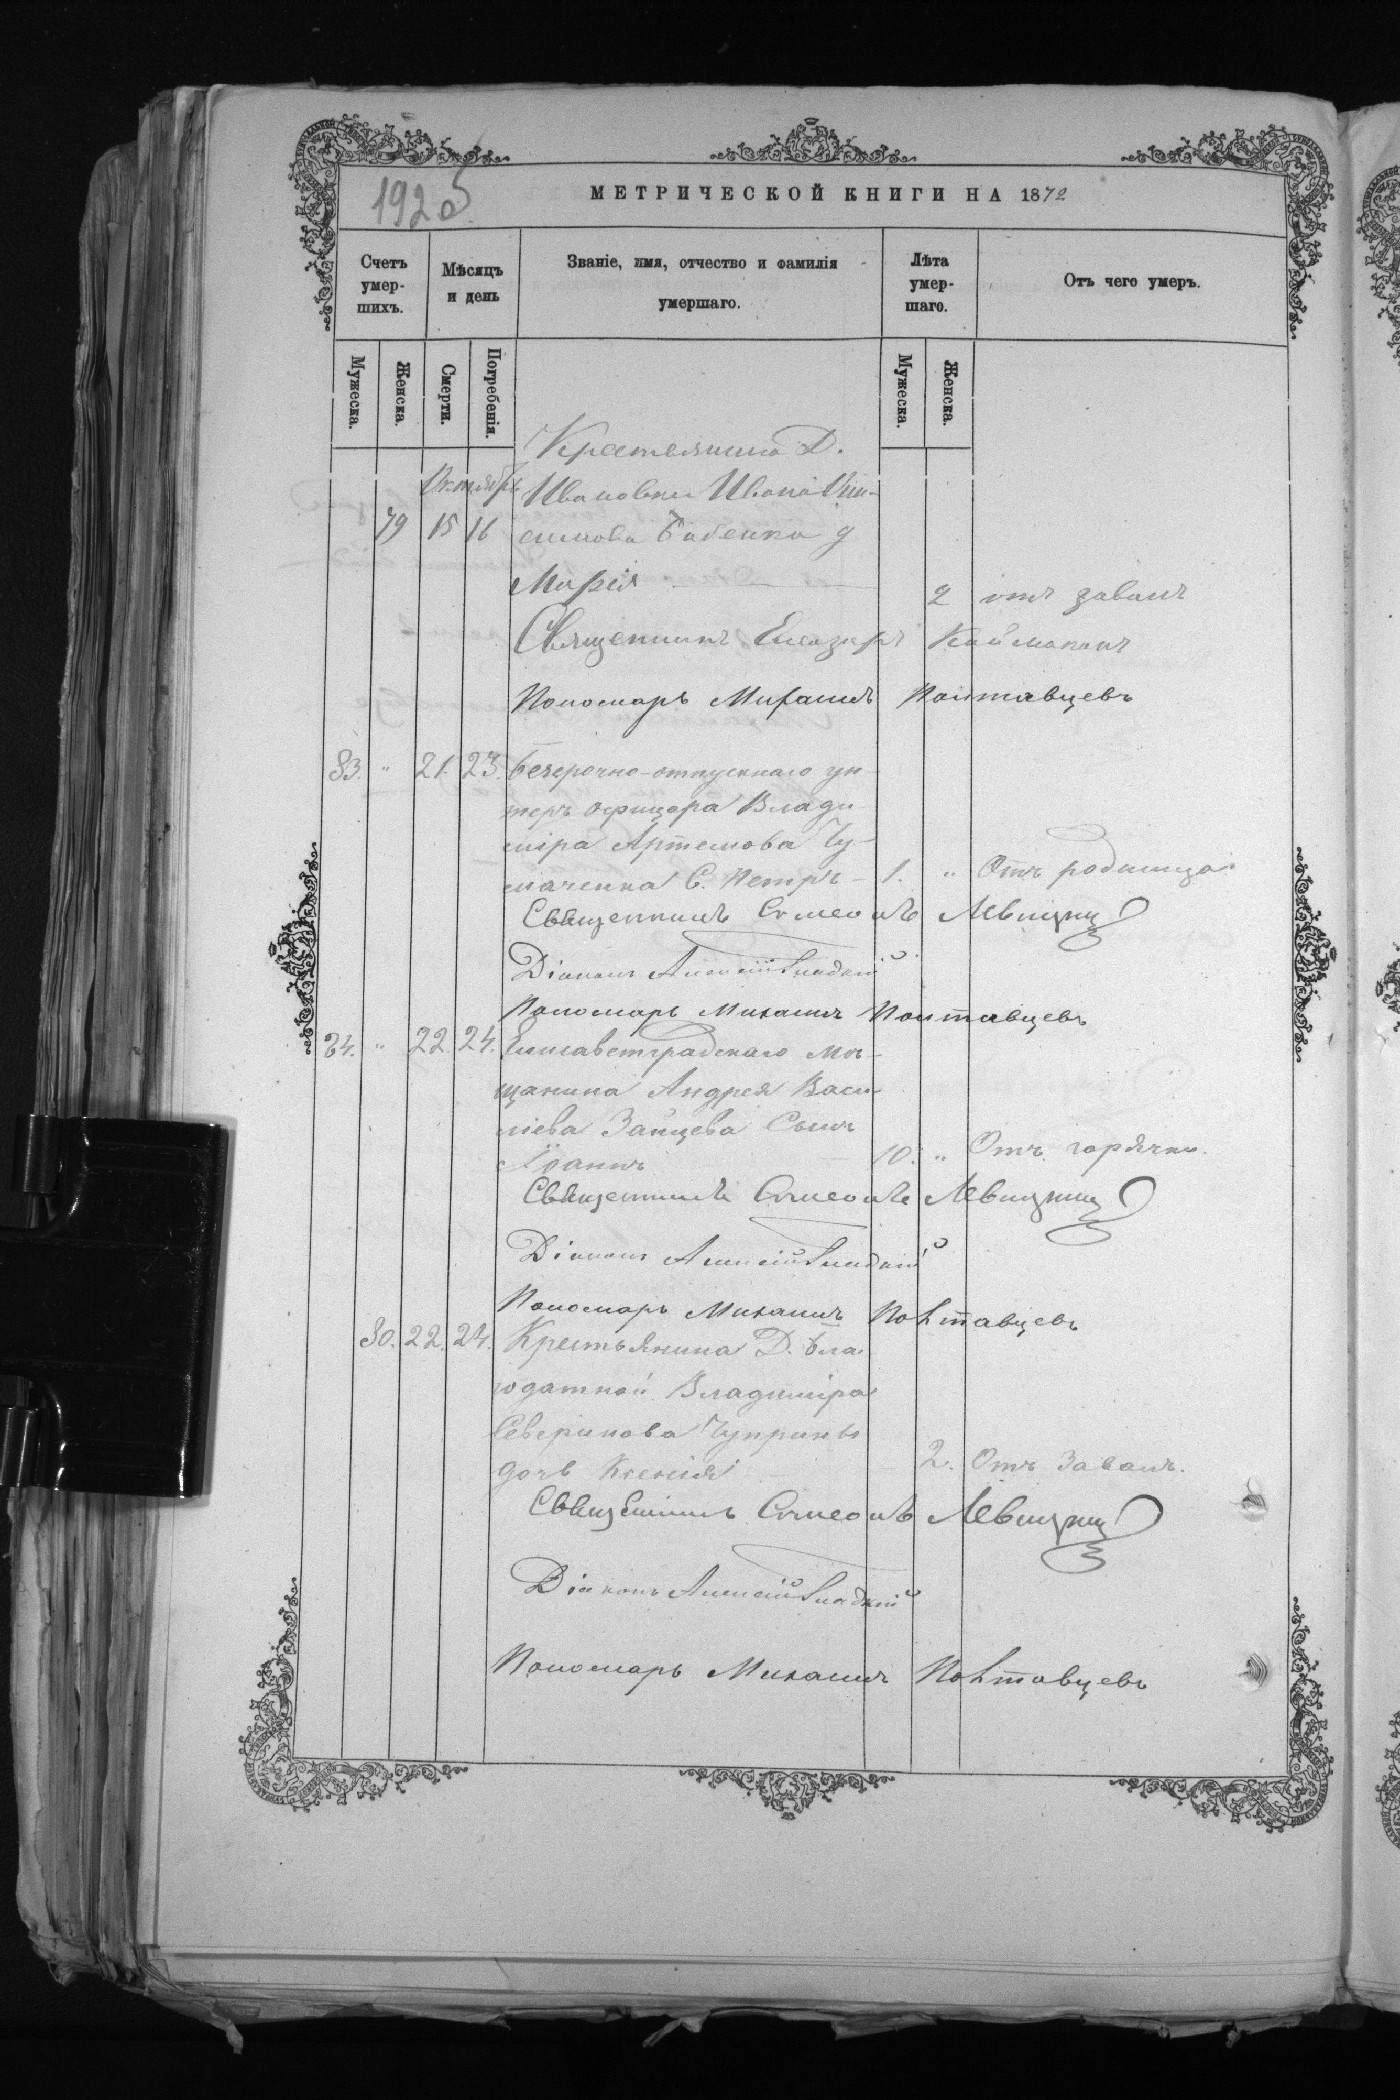 192об
МЕТРИЧЕСКОЙ КНИГИ НА 1872
Счетъ умер-шихъ.
Мѣсяцъ и день
Званіе, имя, отчество и фамилія умершаго.
Лѣта умер-шаго.
Отъ чего умеръ.
Мужеска.
Женска.
Смерти.
Погребенія.
Мужеска.
Женска.
Крестьянина Д.
Октябрь Ивановки Ивана
79 15 16 Бабенка д
Марія 2 отъ завалъ
Священникъ Елеазаръ Каймаканъ
Пономарь Михаилъ Полтавцевъ
83. " 21. 23. безсрочно-отпускнаго ун
теръ офицера Влади
міра Артемова Чу-
маченка С. Петръ - 1. " Отъ родимца
Священникъ Симеонъ Левицкий
Діаконъ Алексій Гладкий
Пономарь Михаилъ Полтавцевъ
84. " 22. 24. Елисаветградскаго мѣ-
щанина Андрея Васи-
лiева Зайцева Сынъ
Іоаннъ 10. " Отъ горячки.
Священникъ Симеонъ Левицкий
Діаконъ Алексій Гладкий
Пономарь Михаилъ Полтавцевъ
80. 22. 24. Крестьянина Д. Бла
годатной Владиміра
Северинова Чуприны
дочь Ксенія 2. Отъ Завалъ.
Священникъ Симеонъ Левицкий
Діаконъ Алексій Гладкий
Пономарь Михаилъ Полтавцевъ